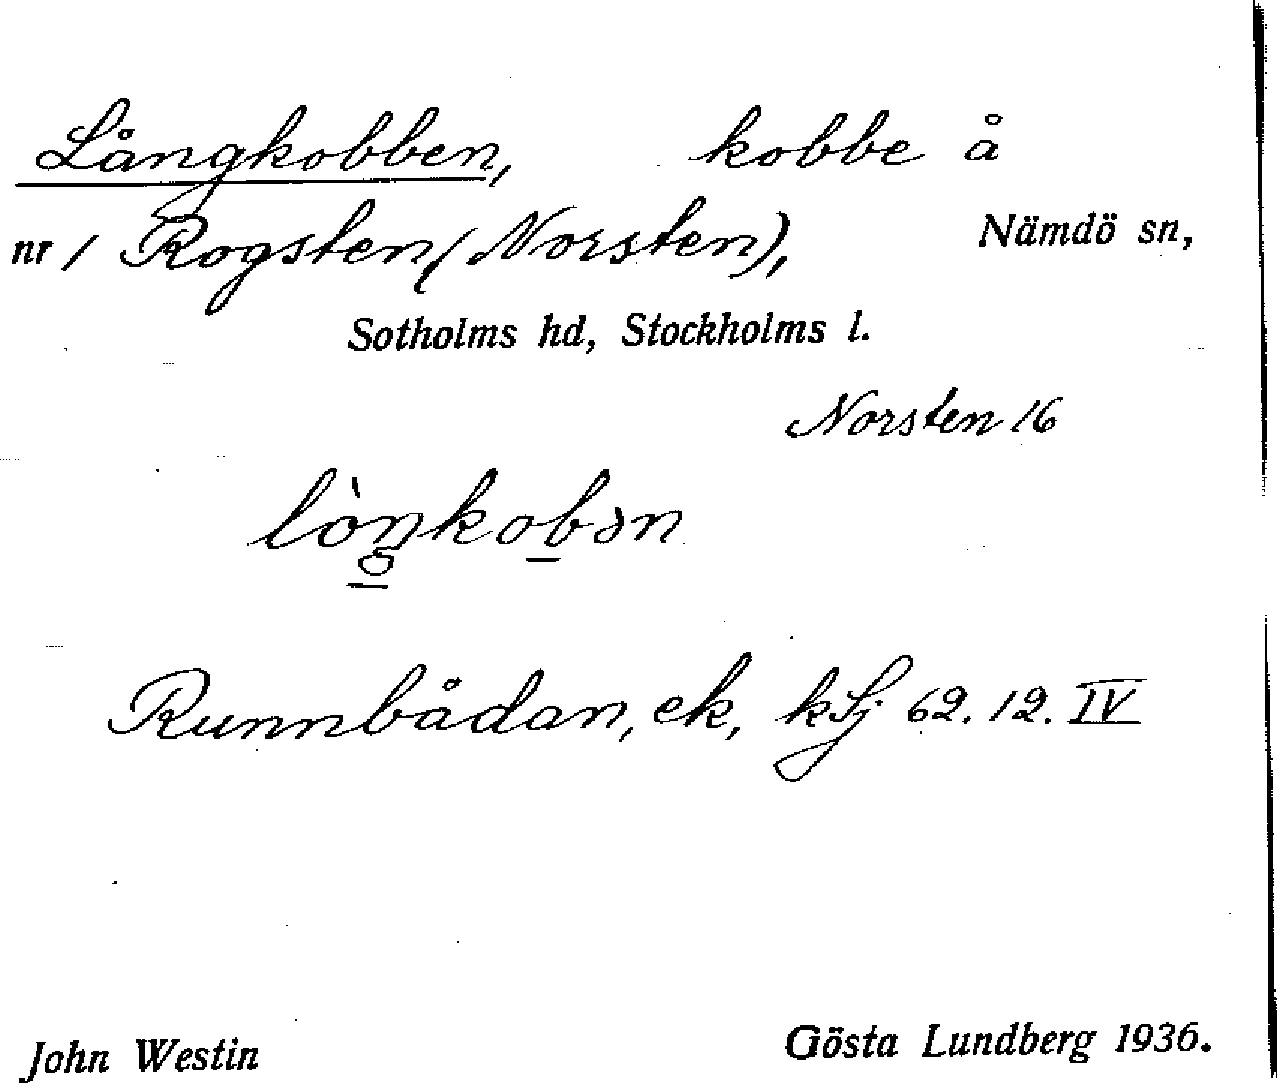 Långkobben, kobbe å
nr 1 Rogsten (Norsten), Nämdö sn,
Sotholms hd, Stockholms l.
Norsten 16
lòŋkobən
Runnbådan, ek, kSj 62. 12. IV
John Westin Gösta Lundberg 1936.